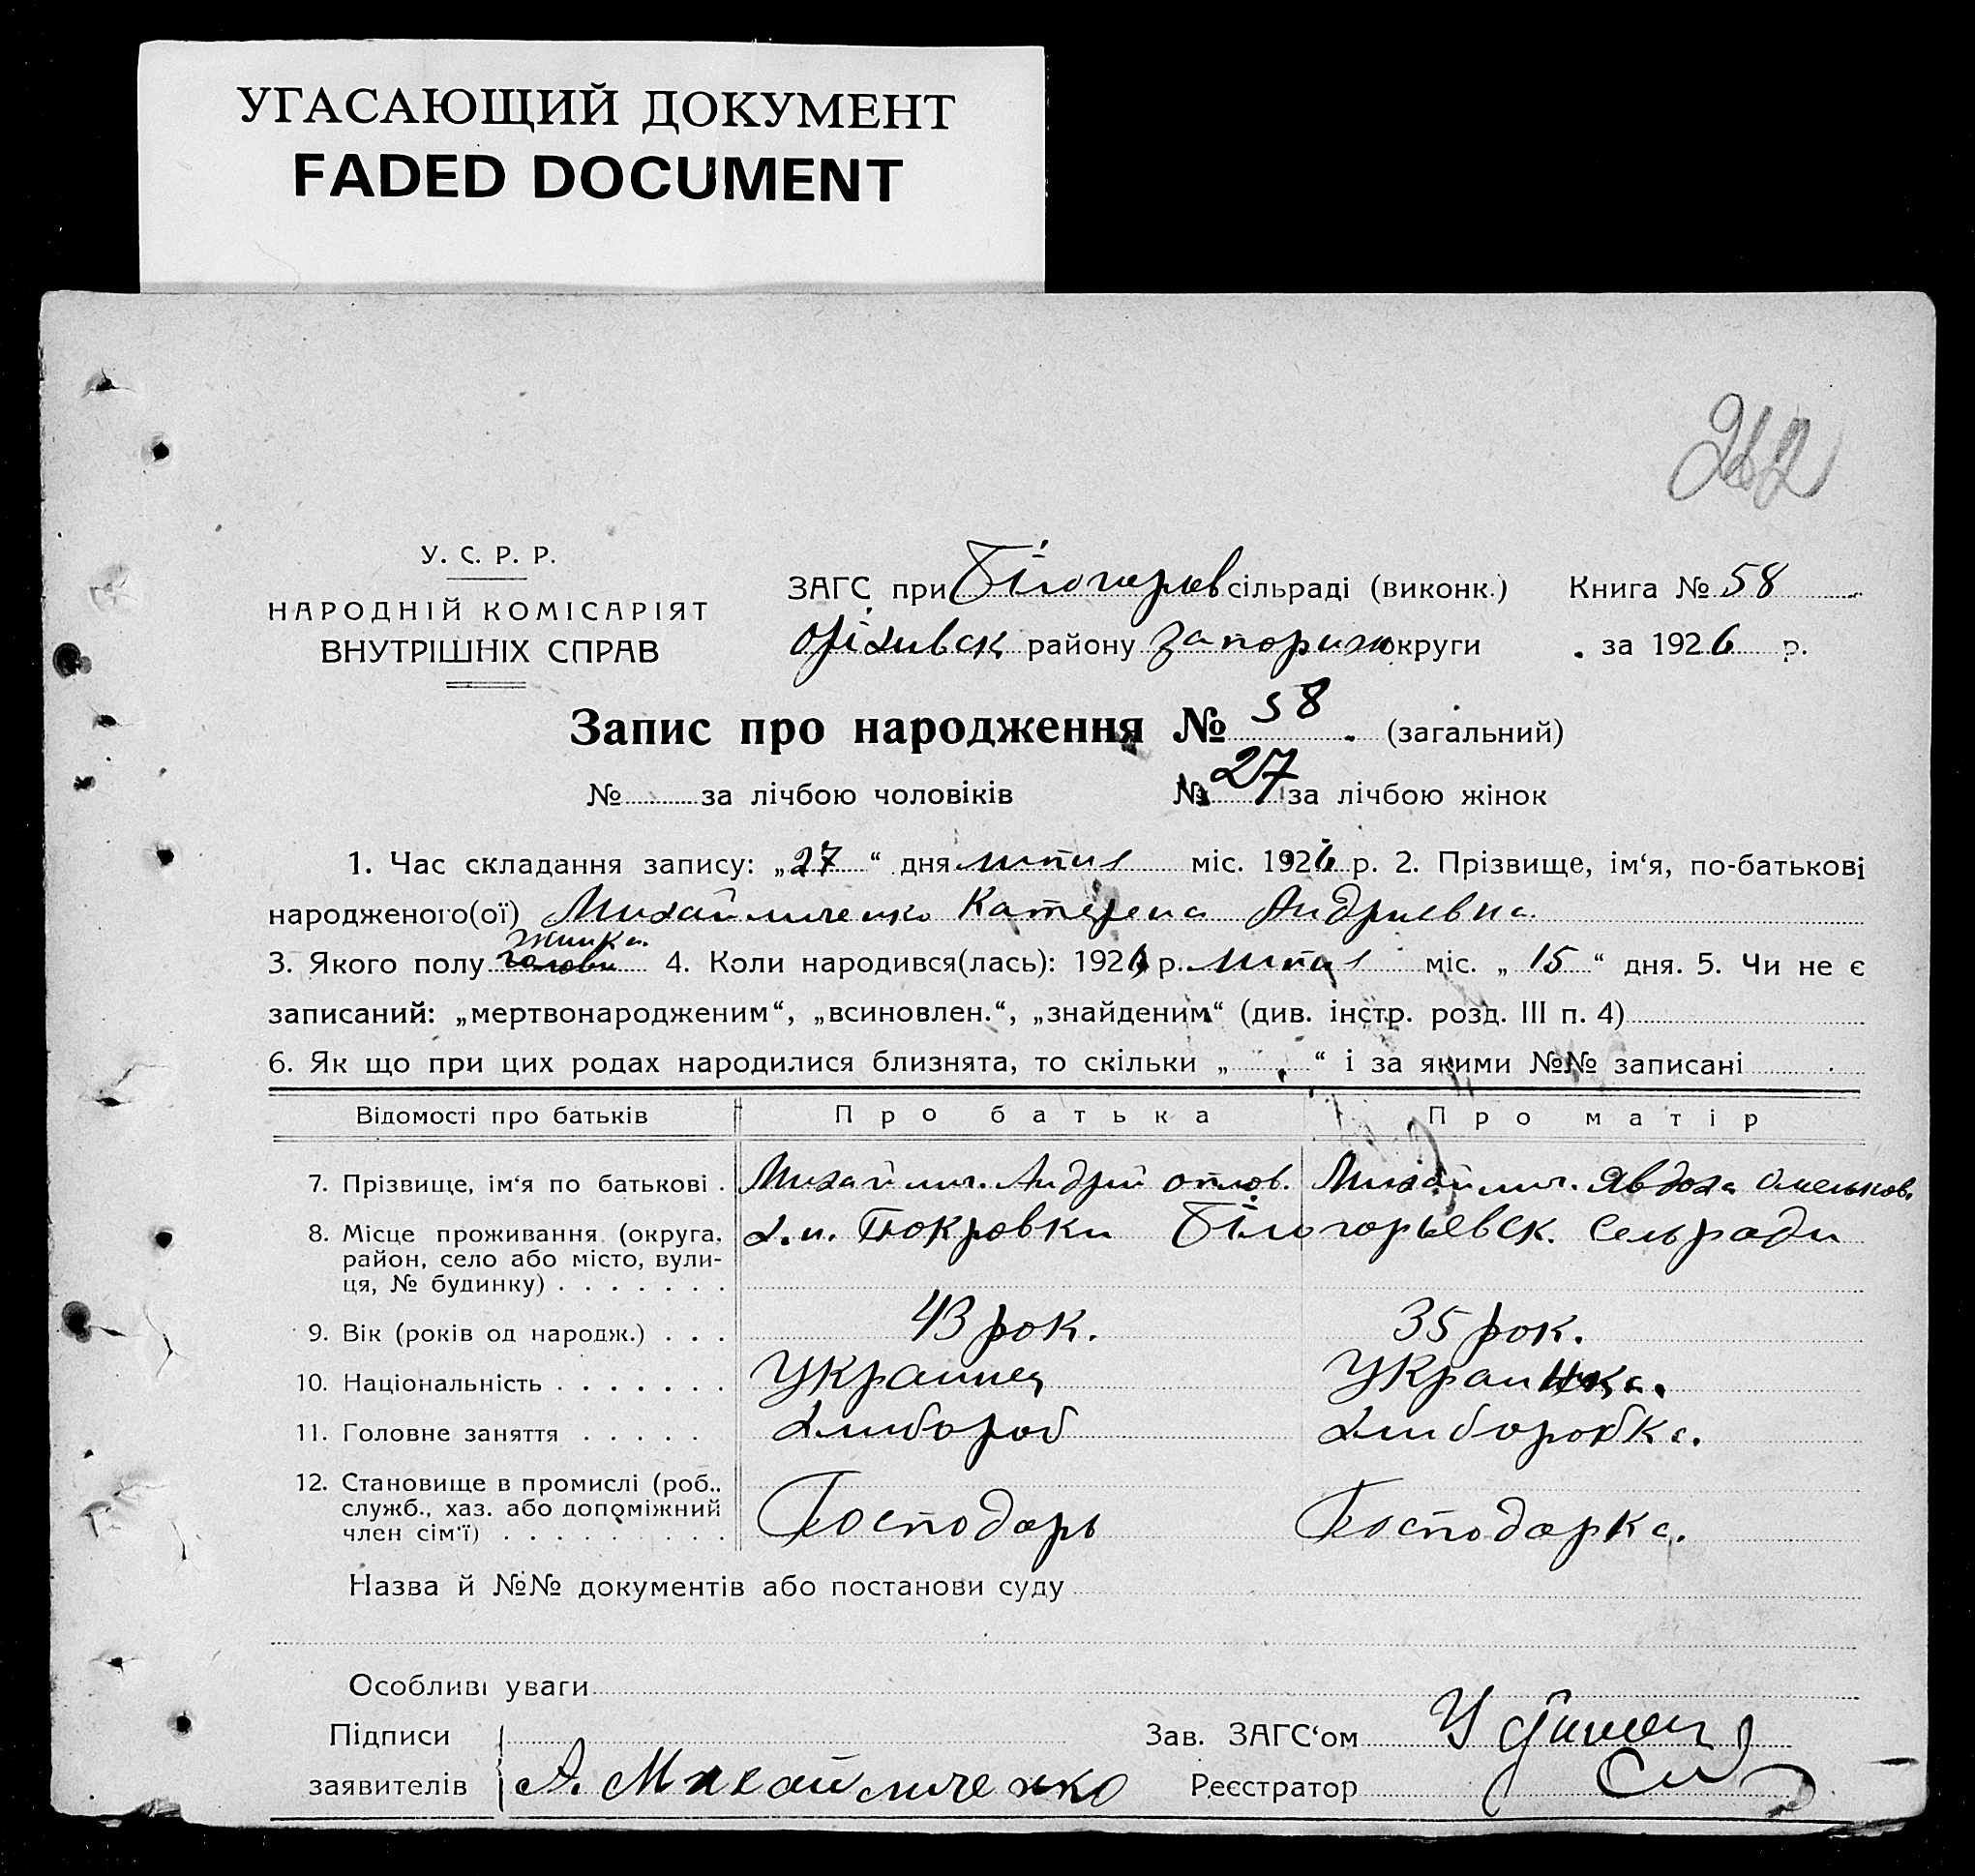 УГАСАЮЩИЙ ДОКУМЕНТ
FADED DOCUMENT
262
У. С. Р. Р.
НАРОДНІЙ КОМІСАРІЯТ
ВНУТРІШНІХ СПРАВ
ЗАГС при Білогорьев сільраді (виконк.) Книга № 58
Оріхивск району Запориж округи за 1926 р.
Запис про народження № 58 (загальний)
№ за лічбою чоловіків № 27 за лічбою жінок
1. Час складання запису: „27“ дня липня міс. 1926 р. 2. Прізвище, ім‘я, по-батькові
народженого(ої) Михайличенко Катерена Андриевна
жинка
3. Якого полу 4. Коли народився(лась): 1926 р. липня міс. „15“ дня. 5. Чи не є
записаний: „мертвонародженим“, „всиновлен.“, „знайденим“ (див. інстр. розд. III п. 4)
6. Як що при цих родах народилися близнята, то скільки „ “ і за якими №№ записані
Відомості про батьків Про батька Про матір
7. Прізвище, ім‘я по батькові . Михайлич. Андрій Михайлич. Явдоха Омельков.
8. Місце проживання (округа, х.н. Покровки Білогорьевск. Сельради
район, село або місто, вули-
ця, № будинку) . . . . . . .
9. Вік (років од народж.) . . . 43 рок. 35 рок.
10. Національність . . . . . . . Украинец Украинка.
11. Головне заняття . . . . . Хлибороб Хлиборобка.
12. Становище в промислі (роб..
служб., хаз. або допоміжний Господарь Господарка.
член сім‘ї) . . . . . . . . .
Назва й №№ документів або постанови суду
Особливі уваги
Підписи Зав. ЗАГС‘ом
заявителів А. Михайличенко Реєстратор